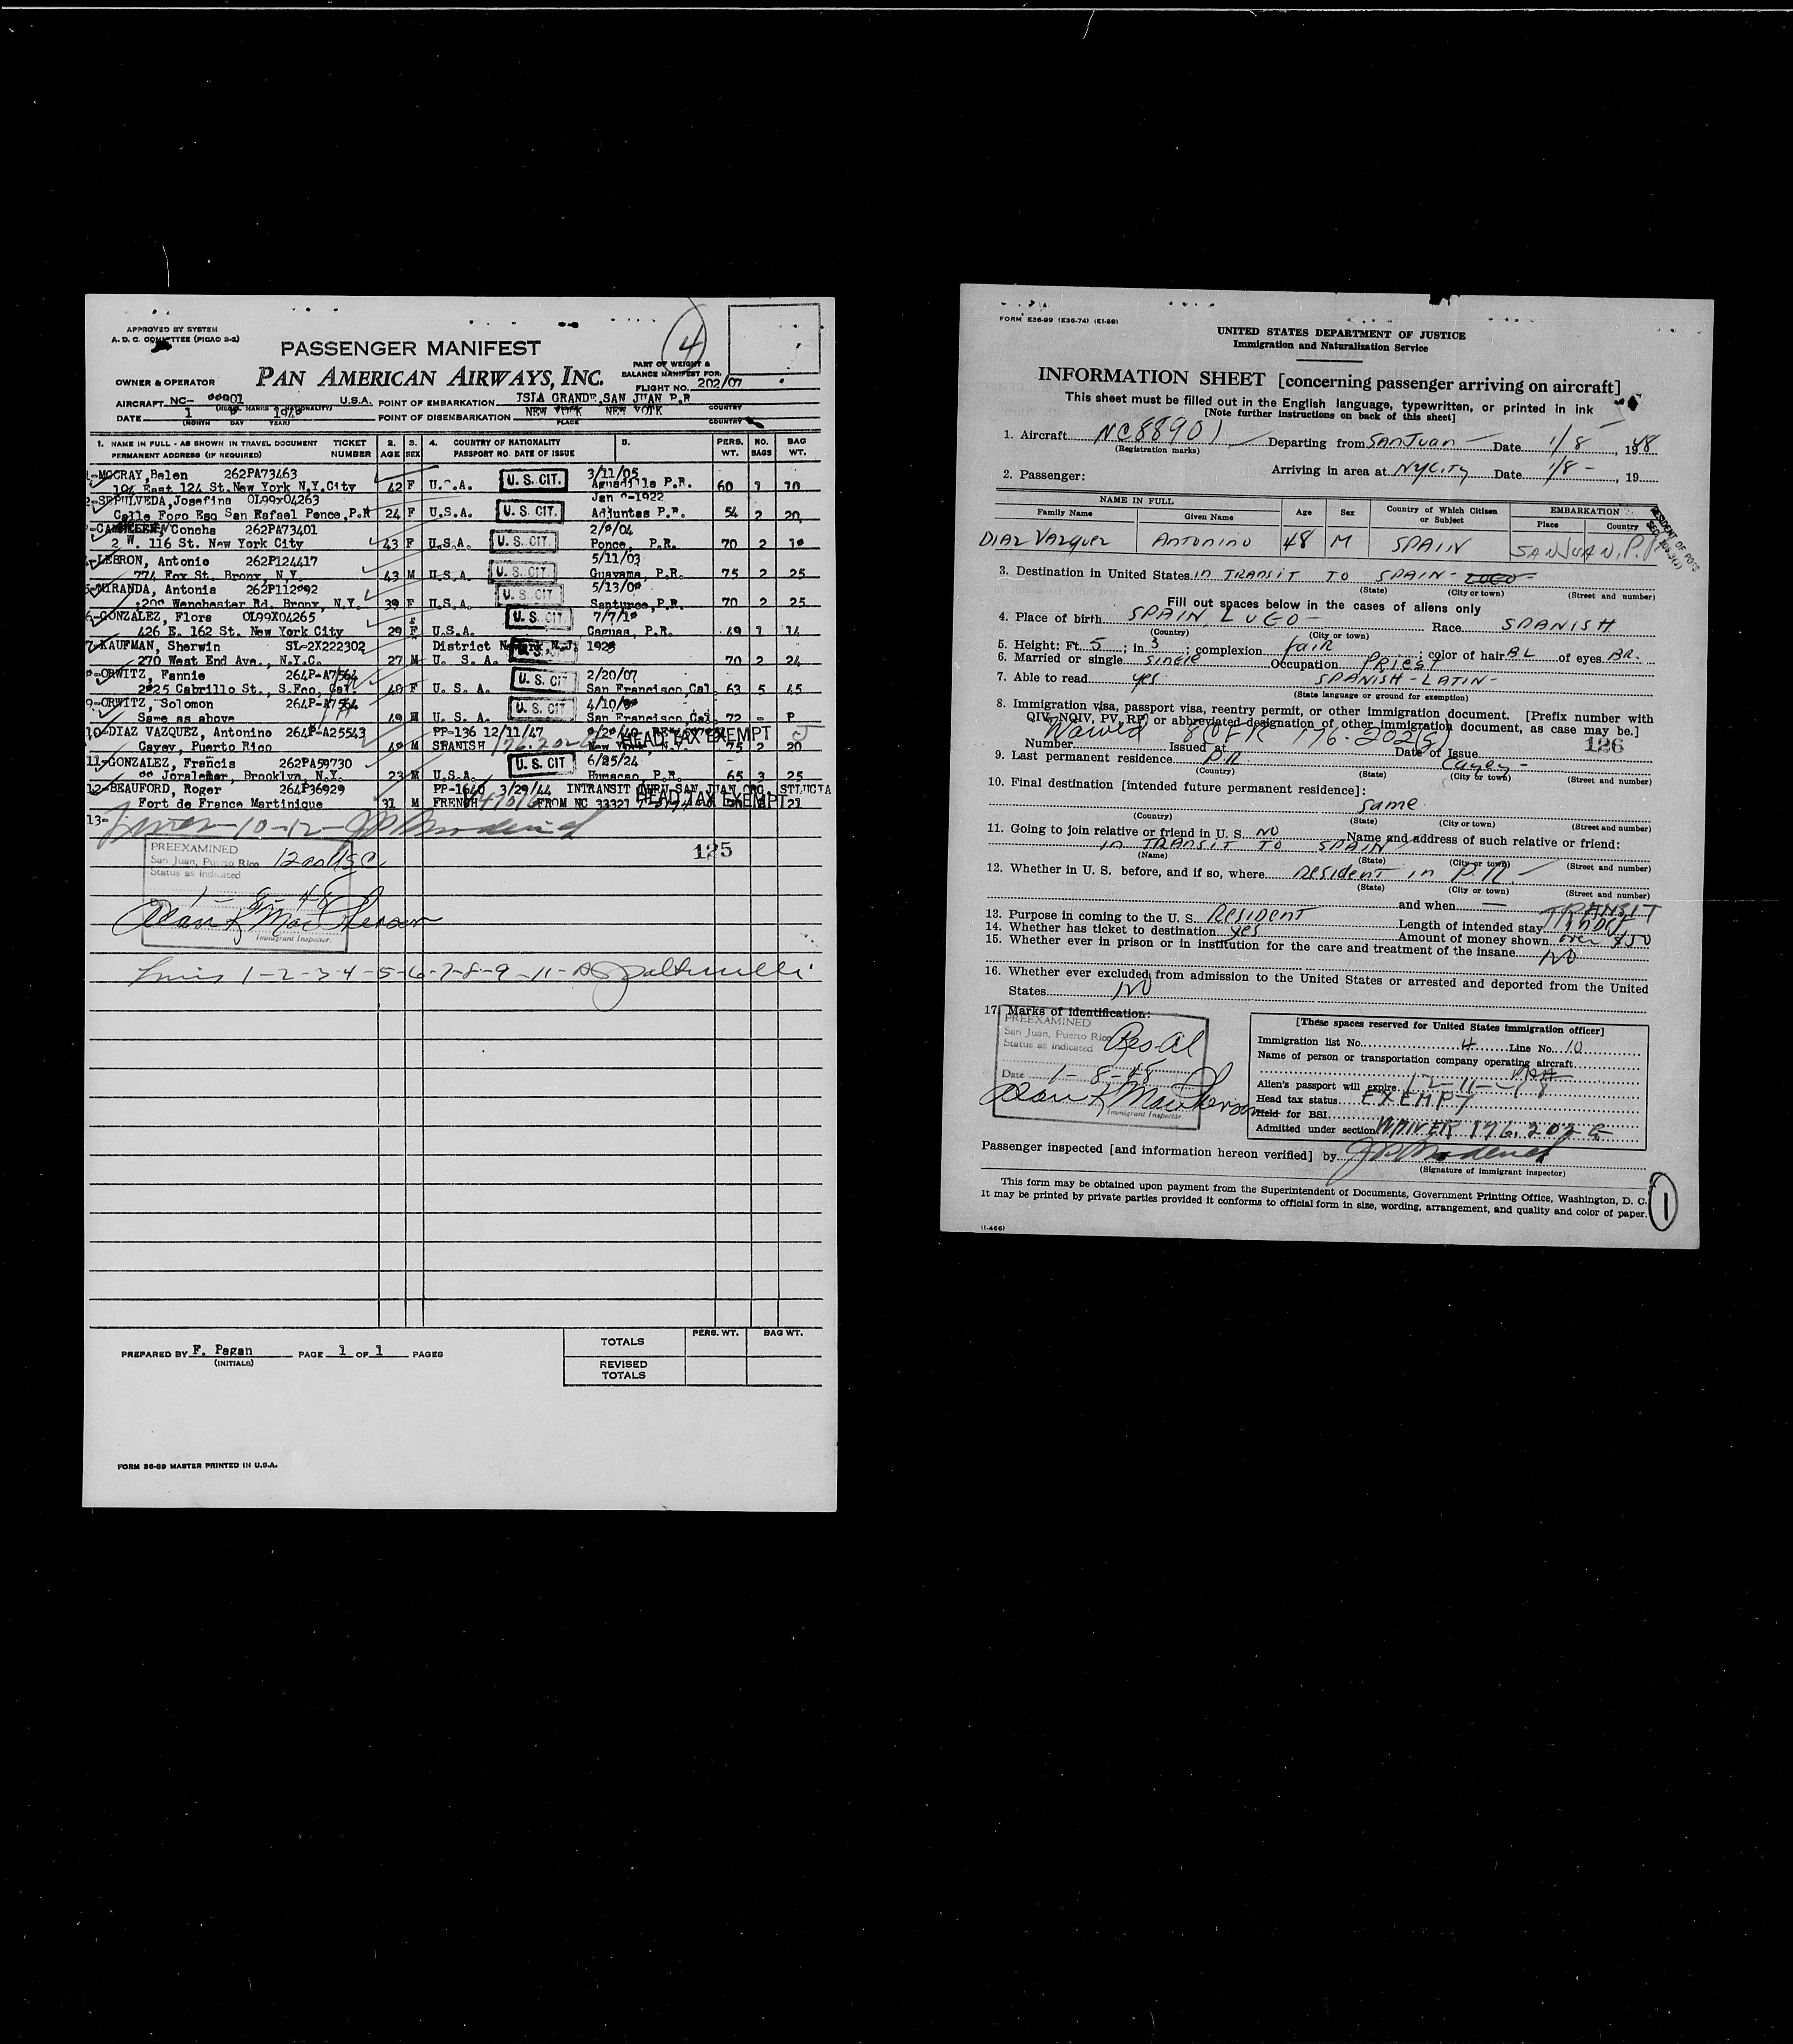 APPROVED BY SYSTEM
A. D. C. COMMITTEE (PICAO 2-2)
4
PASSENGER MANIFEST
PART OF WEIGHT &
BALANCE MANIFEST FOR
OWNER & OPERATOR PAN AMERICAN AIRWAYS, INC. FLIGHT NO. 202/07
AIRCRAFT NC- U.S.A. POINT OF EMBARKATION ISLA GRANDE, SAN JUAN P.R COUNTRY
DATE 1 POINT OF DISEMBARKATION NEW YORK NEW YORK COUNTRY
(MONTH DAY YEAR) PLACE
1. NAME IN FULL - AS SHOWN IN TRAVEL DOCUMENT TICKET 2. 3. 4. COUNTRY OF NATIONALITY 5. PERS. NO. BAG
PERMANENT ADDRESS (IF REQUIRED) NUMBER AGE SEX PASSPORT NO. DATE OF ISSUE WT. BAGS WT.
1-MCCRAY, Belen 262PA73463 3/11/05
East 124 St. New York N.Y. City 42 F U.S.A. U. S. CIT. Aguadilla P.R. 60 1 10
2-SEPULVEDA, Josefina OL99X04263 Jan -1922
Calle Fogo Esq San Rafael Ponce, P.R 24 F U.S.A. U. S. CIT. Adjuntas P.R. 54 2 20
Concha 262PA73401 04
2 W. 116 St. New York City 43 F U.S.A. U. S. CIT. Ponce, P.R. 70 2
LEBRON, Antonio 262P124417 5/11/03
774 Fox St. Bronx, N.Y. 43 M U.S.A. U. S. CIT. Guayama, P.R. 75 2 25
5-MIRANDA, Antonia 5/13/0
Wenchester Rd. Bronx, N.Y. 39 F U.S.A. U. S. CIT. Santurce, P.R. 70 2 25
6-GONZALEZ, Flora OL99X04265 7/7/1
426 E. 162 St. New York City 29 F U.S.A. U. S. CIT. Caguas, P.R. 49 1 14
7-KAUFMAN, Sherwin SL-2X222302 District Newark, N.J.
270 West End Ave., N.Y.C. 27 M U. S. A. U. S. CIT 70 2 24
ORWITZ, Fannie 264P-A7564 2/20/07
Cabrillo St., S.Fco, Cal. F U. S. A. U. S. CIT San Francisco, Cal. 63 5 45
9-ORWITZ, Solomon 264P-A7564 4/10/
Same as above 49 M U. S. A. U. S. CIT San Francisco, Cal. 72 - P
10-DIAZ VAZQUEZ, Antonino 264P-A25543 PP-136 12/11/47 HEAD TAX EXEMPT
Cayey, Puerto Rico M SPANISH 176.202 New York, N.Y. 75 2 20
11-GONZALEZ, Francis 262PA59730 6/25/24
Joralemar, Brooklyn, N.Y. 23 M U.S.A. U. S. CIT Humacao, P.R. 65 3 25
12-BEAUFORD, Roger 264P36929 PP-1640 3/29/44 INTRANSIT SAN JUAN ORG. STLUCIA
Fort de France Martinique 31 M FRENCH FROM NC 33321 HEAD TAX EXEMPT 21
13-
10-12-
PREEXAMINED
San Juan, Puerto Rico 12 USC
Status as indicated
1-8-48
Immigrant Inspector.
125
1-2-3-4-5-6-7-8-9-11-
PREPARED BY F. Pagan PAGE 1 OF 1 PAGES
(INITIALS)
PERS. WT. BAG WT.
TOTALS
REVISED
TOTALS
FORM 36-69 MASTER PRINTED IN U.S.A.
FORM E36-99 (E36-74) (E1-69)
UNITED STATES DEPARTMENT OF JUSTICE
Immigration and Naturalization Service
INFORMATION SHEET [concerning passenger arriving on aircraft]
This sheet must be filled out in the English language, typewritten, or printed in ink
[Note further instructions on back of this sheet]
1. Aircraft NC88901 Departing from San Juan Date 1/8, 1948
(Registration marks)
2. Passenger: Arriving in area at NYCITY Date 1/8-, 19
NAME IN FULL Age Sex Country of Which Citizen or Subject EMBARKATION
Family Name Given Name Place Country
DIAZ VAZQUEZ ANTONINO 48 M SPAIN SAN JUAN, P.R.
3. Destination in United States IN TRANSIT TO SPAIN - LUGO -
(State) (City or town) (Street and number)
Fill out spaces below in the cases of aliens only
4. Place of birth SPAIN, LUGO - Race SPANISH
(Country) (City or town)
5. Height: Ft. 5; in 3; complexion fair; color of hair BL of eyes BR.
6. Married or single single Occupation PRIEST
7. Able to read yes SPANISH-LATIN-
(State language or ground for exemption)
8. Immigration visa, passport visa, reentry permit, or other immigration document. [Prefix number with
QIV, NQIV, PV, RP) or abbreviated designation of other immigration document, as case may be.]
Waived 8 CFR 176.202(g) 126
Number Issued at Date of Issue
9. Last permanent residence P.R. Cayey-
(Country) (State) (City or town) (Street and number)
10. Final destination [intended future permanent residence]:
same
(Country) (State) (City or town) (Street and number)
11. Going to join relative or friend in U. S. NO Name and address of such relative or friend:
IN TRANSIT TO SPAIN
(Name) (State) (City or town) (Street and number)
12. Whether in U. S. before, and if so, where Resident in P.R. -
(State) (City or town) (Street and number)
and when —
13. Purpose in coming to the U. S. RESIDENT Length of intended stay TRANSIT
14. Whether has ticket to destination yes Amount of money shown over $50
15. Whether ever in prison or in institution for the care and treatment of the insane NO
16. Whether ever excluded from admission to the United States or arrested and deported from the United
States NO
17. Marks of identification:
PREEXAMINED
San Juan, Puerto Rico
Status as indicated
Date 1-8-48
Immigrant Inspector
[These spaces reserved for United States immigration officer]
Immigration list No. 4 Line No. 10
Name of person or transportation company operating aircraft
PAA
Alien's passport will expire 12-11-
Head tax status EXEMPT
Held for BSI
Admitted under section WAIVER 176.202 G
Passenger inspected [and information hereon verified] by
(Signature of immigrant inspector)
This form may be obtained upon payment from the Superintendent of Documents, Government Printing Office, Washington, D. C.
It may be printed by private parties provided it conforms to official form in size, wording, arrangement, and quality and color of paper.
1
(I-466)